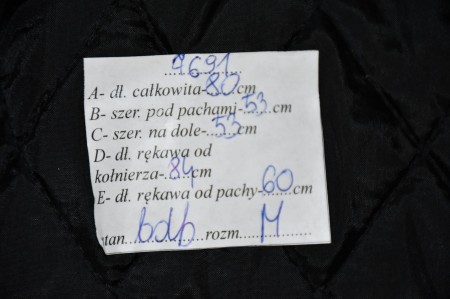 9691
A- dł. całkowita-80cm
B- szer. pod pachami-53.cm
C- szer. na dole-....53cm
D- dł. rękawa od
kołnierza-..84cm
E- dł. rękawa od pachy-60cm
stan bdb rozm. M